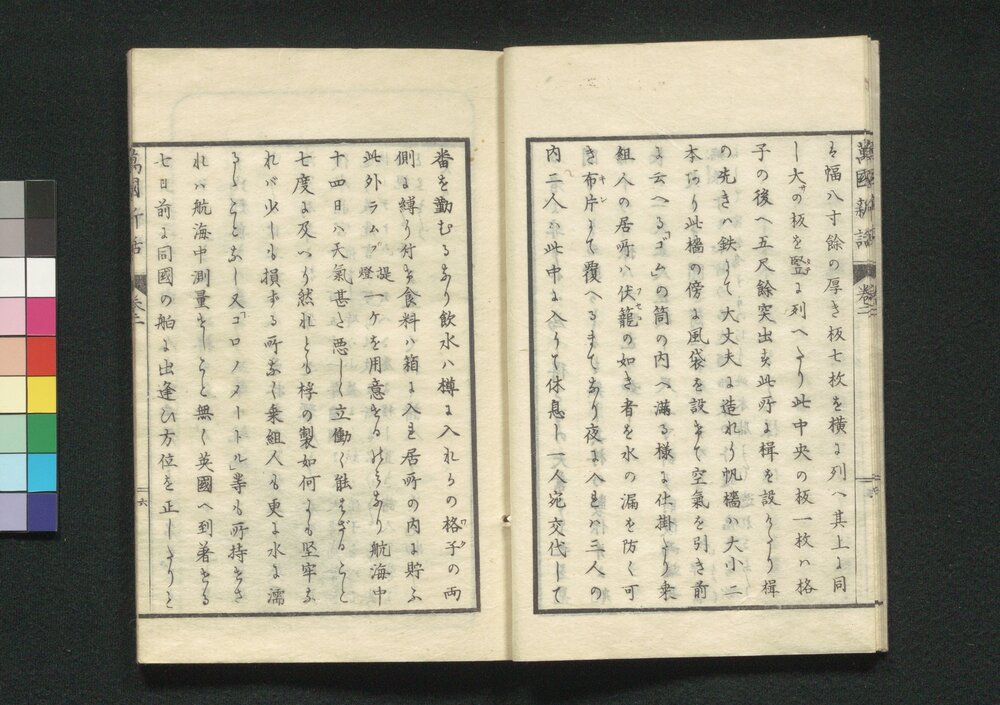 萬國新話 巻二
は幅八寸餘の厚き板七枚を横に列へ其上に同
し大サの板を竪に列へたり此中央の板一枚ハ格
子の後へ五尺餘突出す此所に楫を設けたり楫
の先きハ鉄にて大丈夫に造れり帆檣ハ大小二
本あり此檣の傍に風袋を設けて空氣を引き前
に云へる「ゴム」の筒の内へ満る様に仕掛たり乗
組人の居所ハ伏籠の如き者を水の漏を防く可
き布片にて覆へるまてなり夜に入れハ三人の
内二人ハ此中に入りて休息し一人宛交代して
番を勤むるなり飲水ハ樽に入れ的の格子の両
側に縛り付け食料ハ箱に入れ居所の内に貯ふ
此外ラムプ提燈一ケを用意せるのみなり航海中
十四日ハ天氣甚た悪しく立働く能はざること
七度に及へり然れとも桴の製如何にも堅牢な
れバ少しも損する所なく乗組人も更に水に濡
るゝことなし又「コロノメートル」等も所持せさ
れハ航海中測量せしこと無く英國へ到著せる
七日前に同國の舶に出逢ひ方位を正したりと
萬國新話 巻二 六